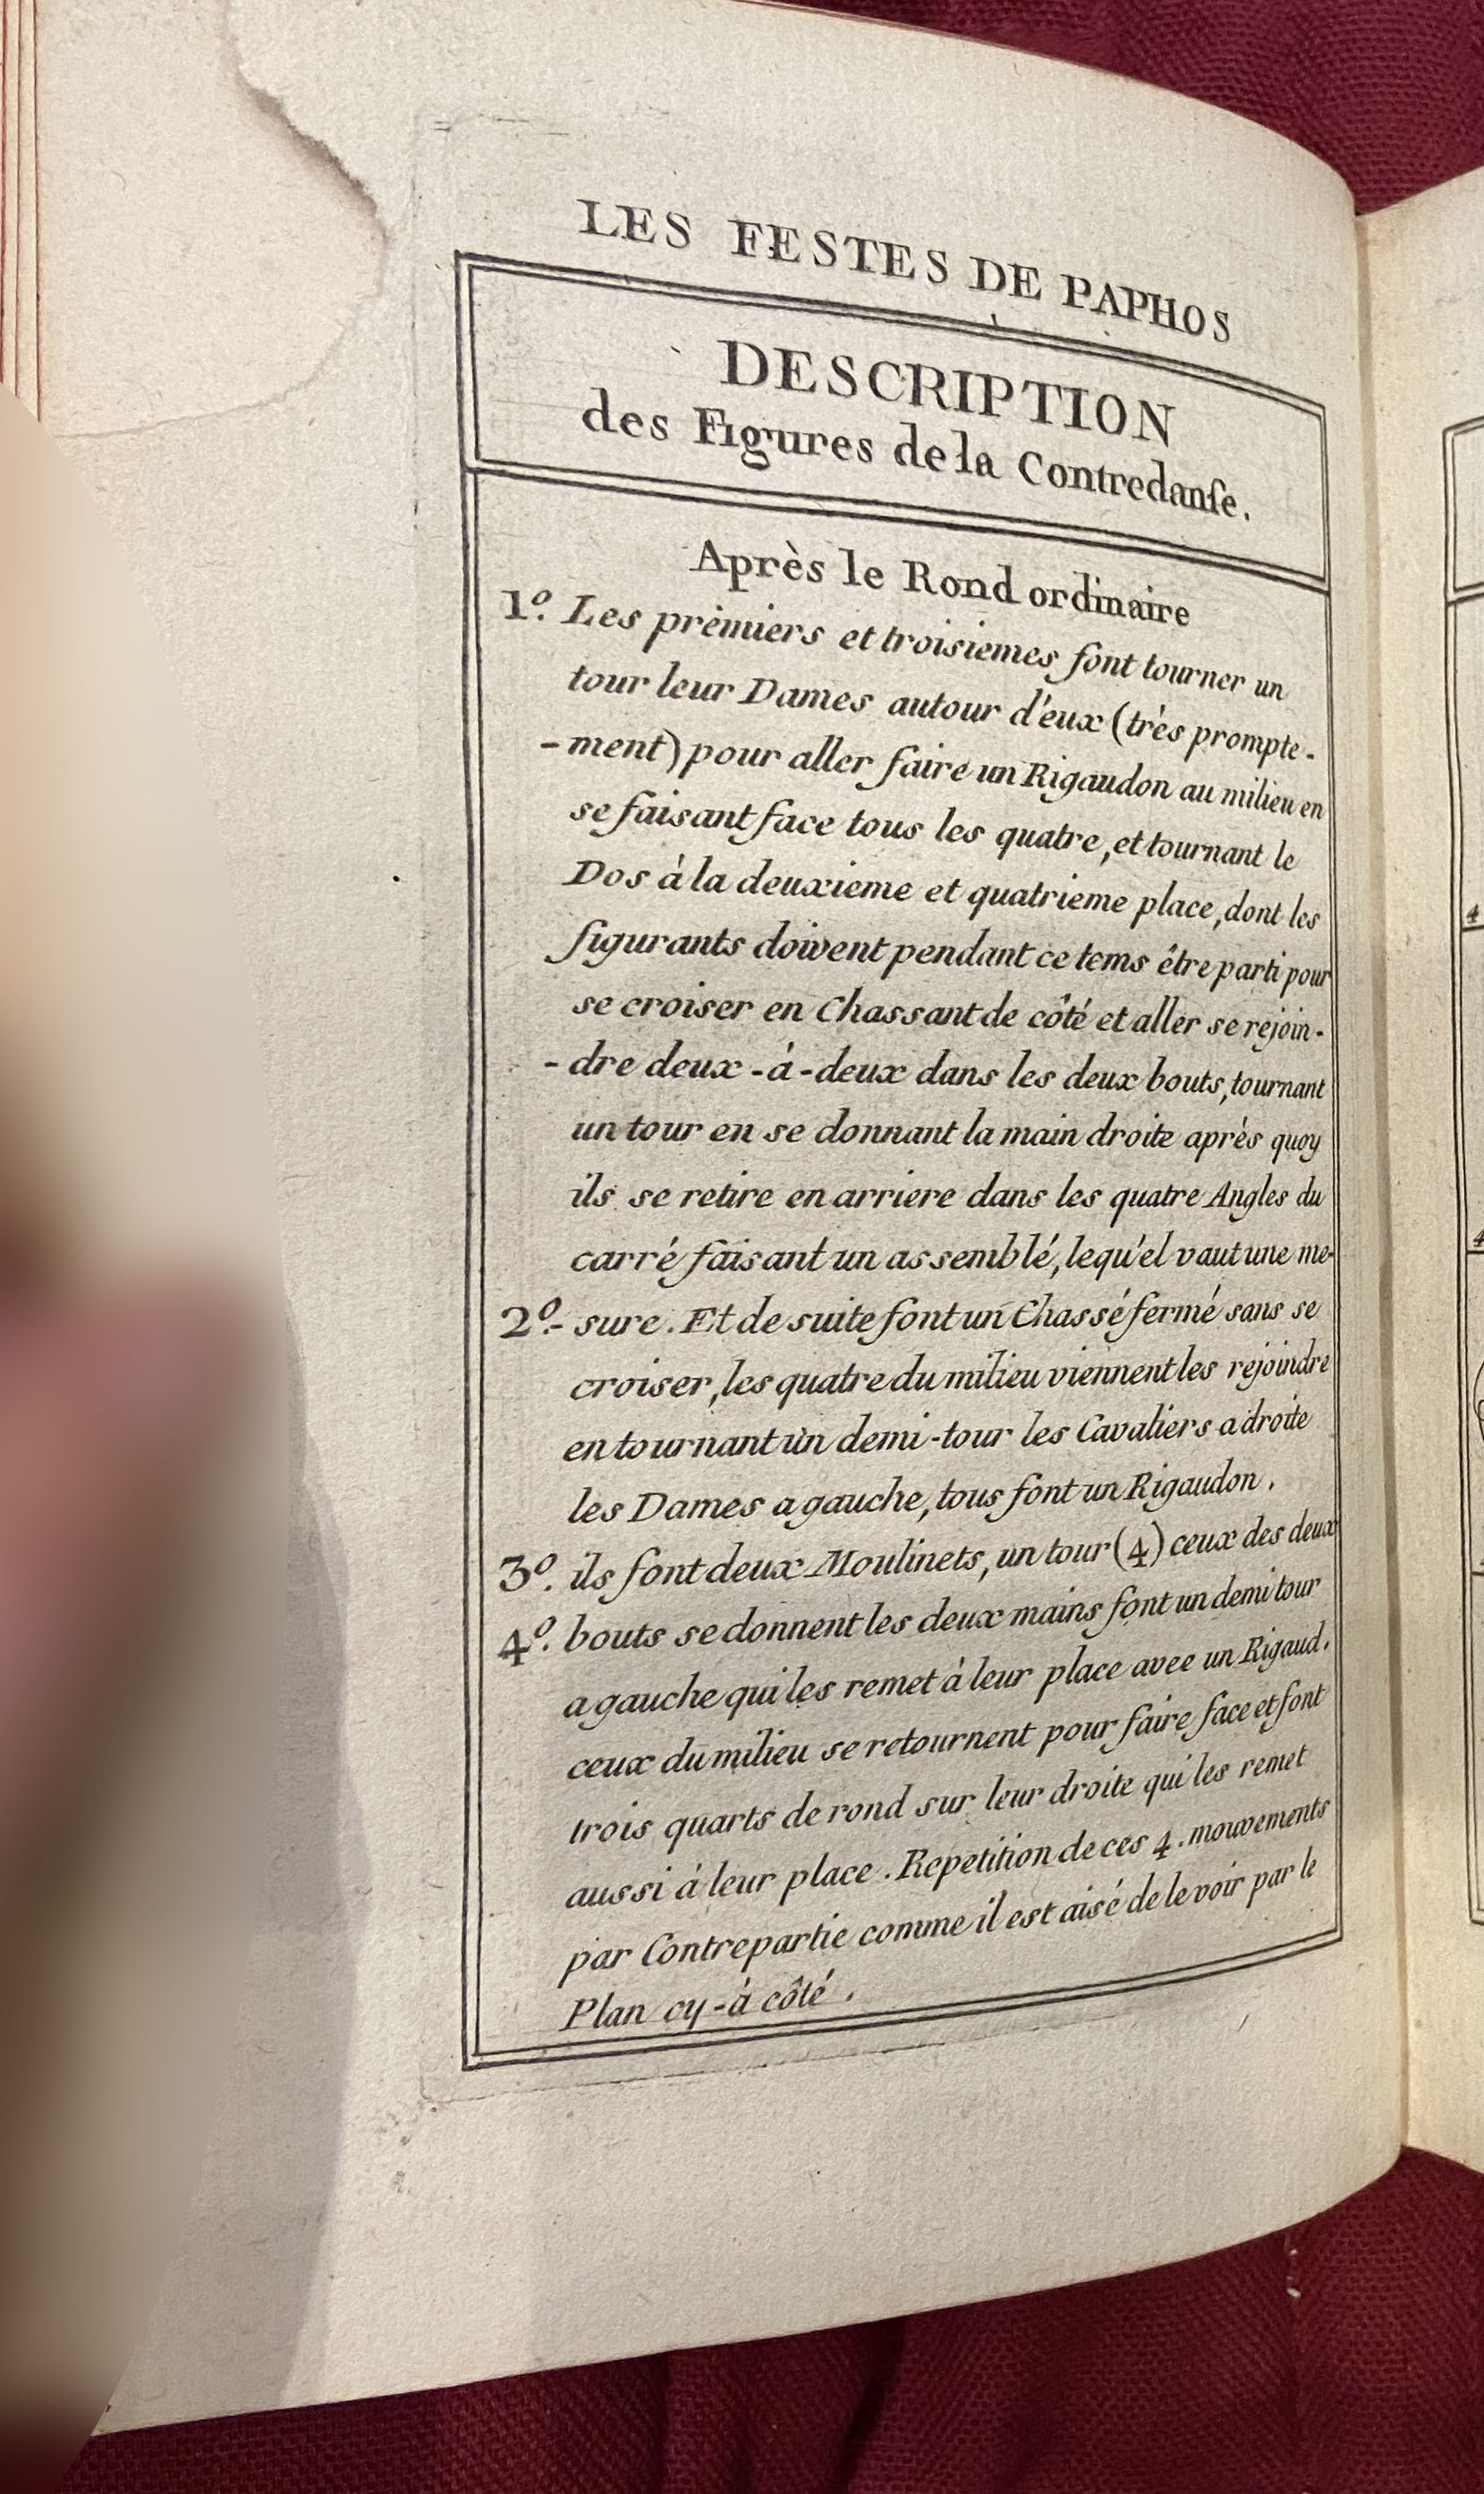 LES FESTES DE PAPHOS
DESCRIPTION
des Figures de la Contredanſe.
Après le Rond ordinaire
1º. Les prémiers et troisiemes font tourner un
tour leur Dames autour d'eux (très prompte-
-ment) pour aller faire un Rigaudon au milieu en
se faisant face tous les quatre, et tournant le
Dos à la deuxieme et quatrieme place, dont les
figurants doivent pendant ce tems être parti pour
se croiser en Chassant de côté et aller se rejoin-
-dre deux-à-deux dans les deux bouts, tournant
un tour en se donnant la main droite après quoy
ils se retire en arriere dans les quatre Angles du
carré faisant un assemblé, lequ'el vaut une me-
2º.- sure. Et de suite font un Chassé fermé sans se
croiser, les quatre du milieu viennent les rejoindre
en tournant un demi-tour les Cavaliers a droite
les Dames a gauche, tous font un Rigaudon.
3º. ils font deux Moulinets, un tour (4) ceux des deux
4º. bouts se donnent les deux mains font un demi tour
a gauche qui les remet à leur place avec un Rigaud.
ceux du milieu se retournent pour faire face et font
trois quarts de rond sur leur droite qui les remet
aussi à leur place. Repetition de ces 4. mouvements
par Contrepartie comme il est aisé de le voir par le
Plan cy-à côté.
4
4